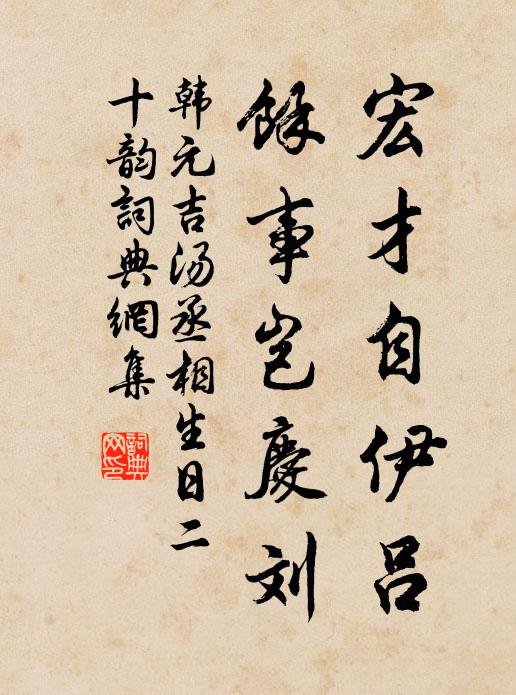 宏才自伊吕
餘事岂慶刘
韩元吉汤丞相生日二
十韵詞典網集
詞典网印